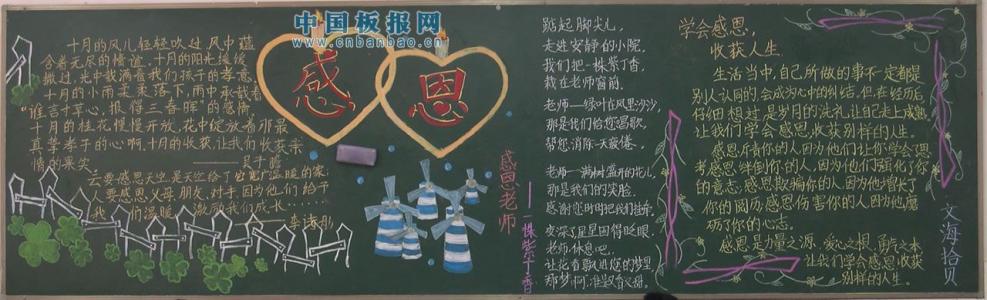 中国板报网
www.cnbanbao.cn
十月的风儿轻轻吹过,风中蕴
含着无尽的情谊,十月的阳光缓缓
撒过,光中载满着我们孩子的孝意,
十月的小雨柔柔落下,雨中承载着
"谁言寸草心,报得三春晖"的感情,
十月的桂花慢慢开放,花中绽放着那最
真挚孝子的心啊,十月的收获,让我们收获亲
情的果实
要感恩天空,是天空给了
要感恩父母,朋友,对手,因为他们给予
我们温暖,激励我们成长……
李诗彤
感
恩
感恩老师
——一株紫丁香
踮起脚尖儿,
走进安静的小院,
我们把一株紫丁香,
栽在老师窗前。
老师——绿叶在风里沙沙,
那是我们给您唱歌,
帮您消除一天疲倦。
老师——满树盛开的花儿,
那是我们的笑脸,
感谢您时时把我们挂牵。
夜深了星星困得眨眼,
老师,休息吧。
让花香飘进您的梦里,
那梦啊,准又香又甜。
学会感恩,
收获人生。
生活当中,自己所做的事不一定都是
别人认同的,会成为心中的纠结,但在经历后,
仔细想过,是岁月的洗礼,让自己走上成熟,
让我们学会感恩,收获别样的人生。
感恩斥责你的人,因为他们让你学会思
考,感恩绊倒你的人,因为他们强化了你
的意志;感恩欺骗你的人,因为他增长了
你的阅历;感恩伤害你的人,因为他磨
动了你的心志。
感恩是力量之源,爱心之根,勇气之本,
让我们学会感恩,收获
别样的人生
文海拾贝